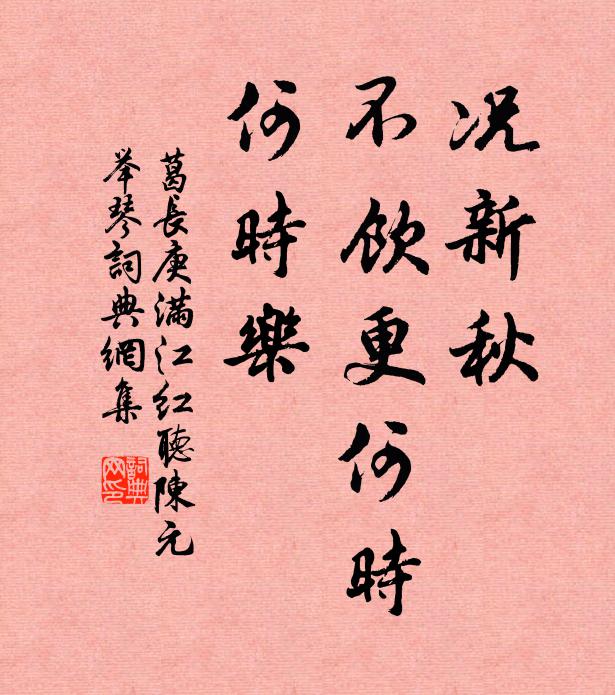 况新秋
不飲更何時
何時樂
葛長庚滿江紅聽陳元
举琴詞典網集
詞典
网印